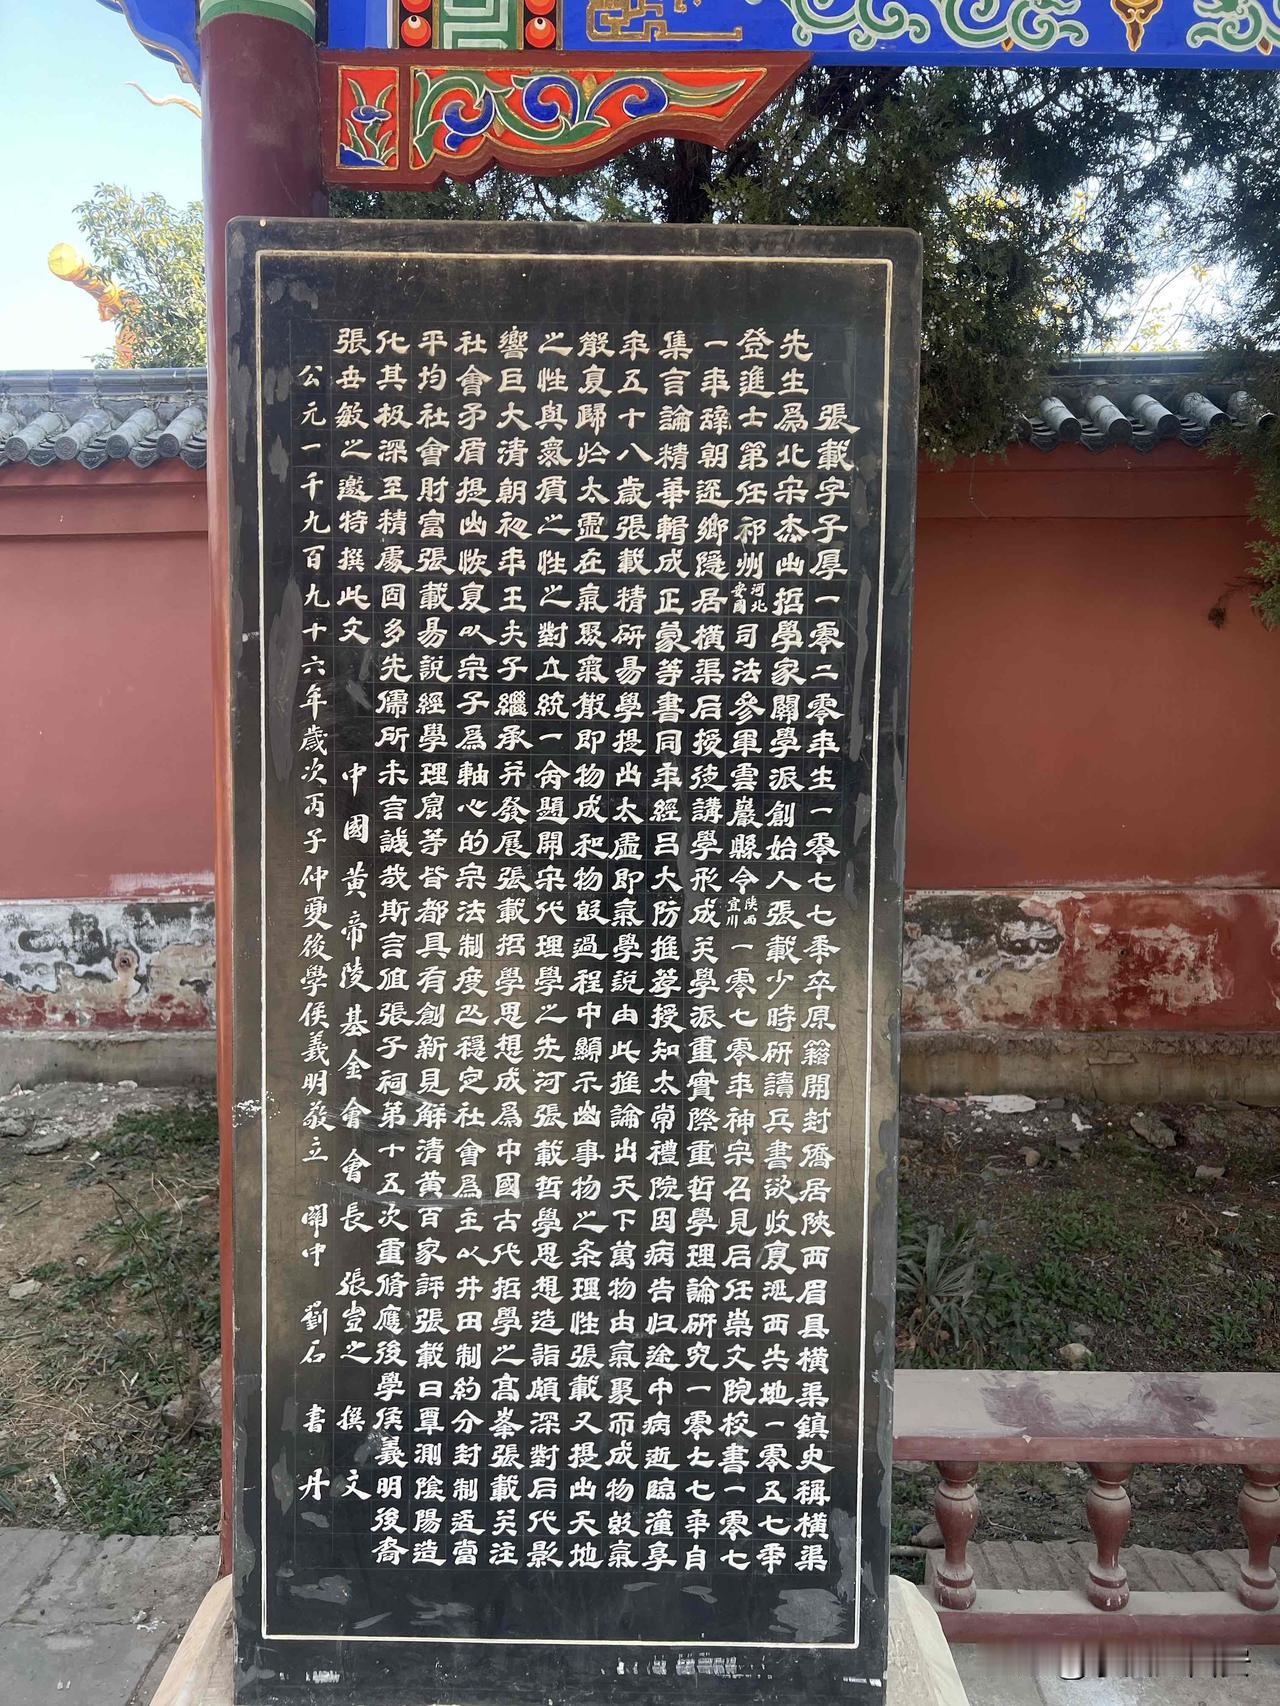 張載字子厚一零二零年生一零七七年卒原籍開封僑居陝西眉县橫渠鎮史稱橫渠
先生爲北宋杰出哲學家關學派創始人張載少時研讀兵書欲收复洮西失地一零五七年
登進士第任祁州河北安國司法參軍雲巖縣令陝西宜川一零七零年神宗召見后任崇文院校書一零七
一年辞朝还鄉隱居橫渠后授徒講學形成关學派重實際重哲學理論研究一零七七年自
集言論精華輯成正蒙等書同年經呂大防推荐授知太常禮院因病告归途中病逝臨潼享
年五十八歲張載精研易學提出太虛即氣學說由此推論出天下萬物由氣聚而成物毀氣
散复歸於太虛在氣聚氣散即物成和物毀過程中顯示出事物之条理性張載又提出天地
之性與氣質之性之對立統一命題開宋代理學之先河張載哲學思想造詣頗深對后代影
響巨大清朝初年王夫子繼承并發展張載哲學思想成爲中國古代哲學之高峯張載关注
社會矛盾提出恢复以宗子爲軸心的宗法制度以穩定社會爲主以井田制約分封制适當
平均社會財富張載易說經學理窟等皆都具有創新見解清黃百家評張載曰覃測陰陽造
化其极深至精處固多先儒所未言誠哉斯言值張子祠第十五次重脩應後學侯義明後裔
張世敏之邀特撰此文 中國黃帝陵基金會會長 張豈之 撰文
公元一千九百九十六年歲次丙子仲夏後學侯義明敬立 關中 劉石 書丹